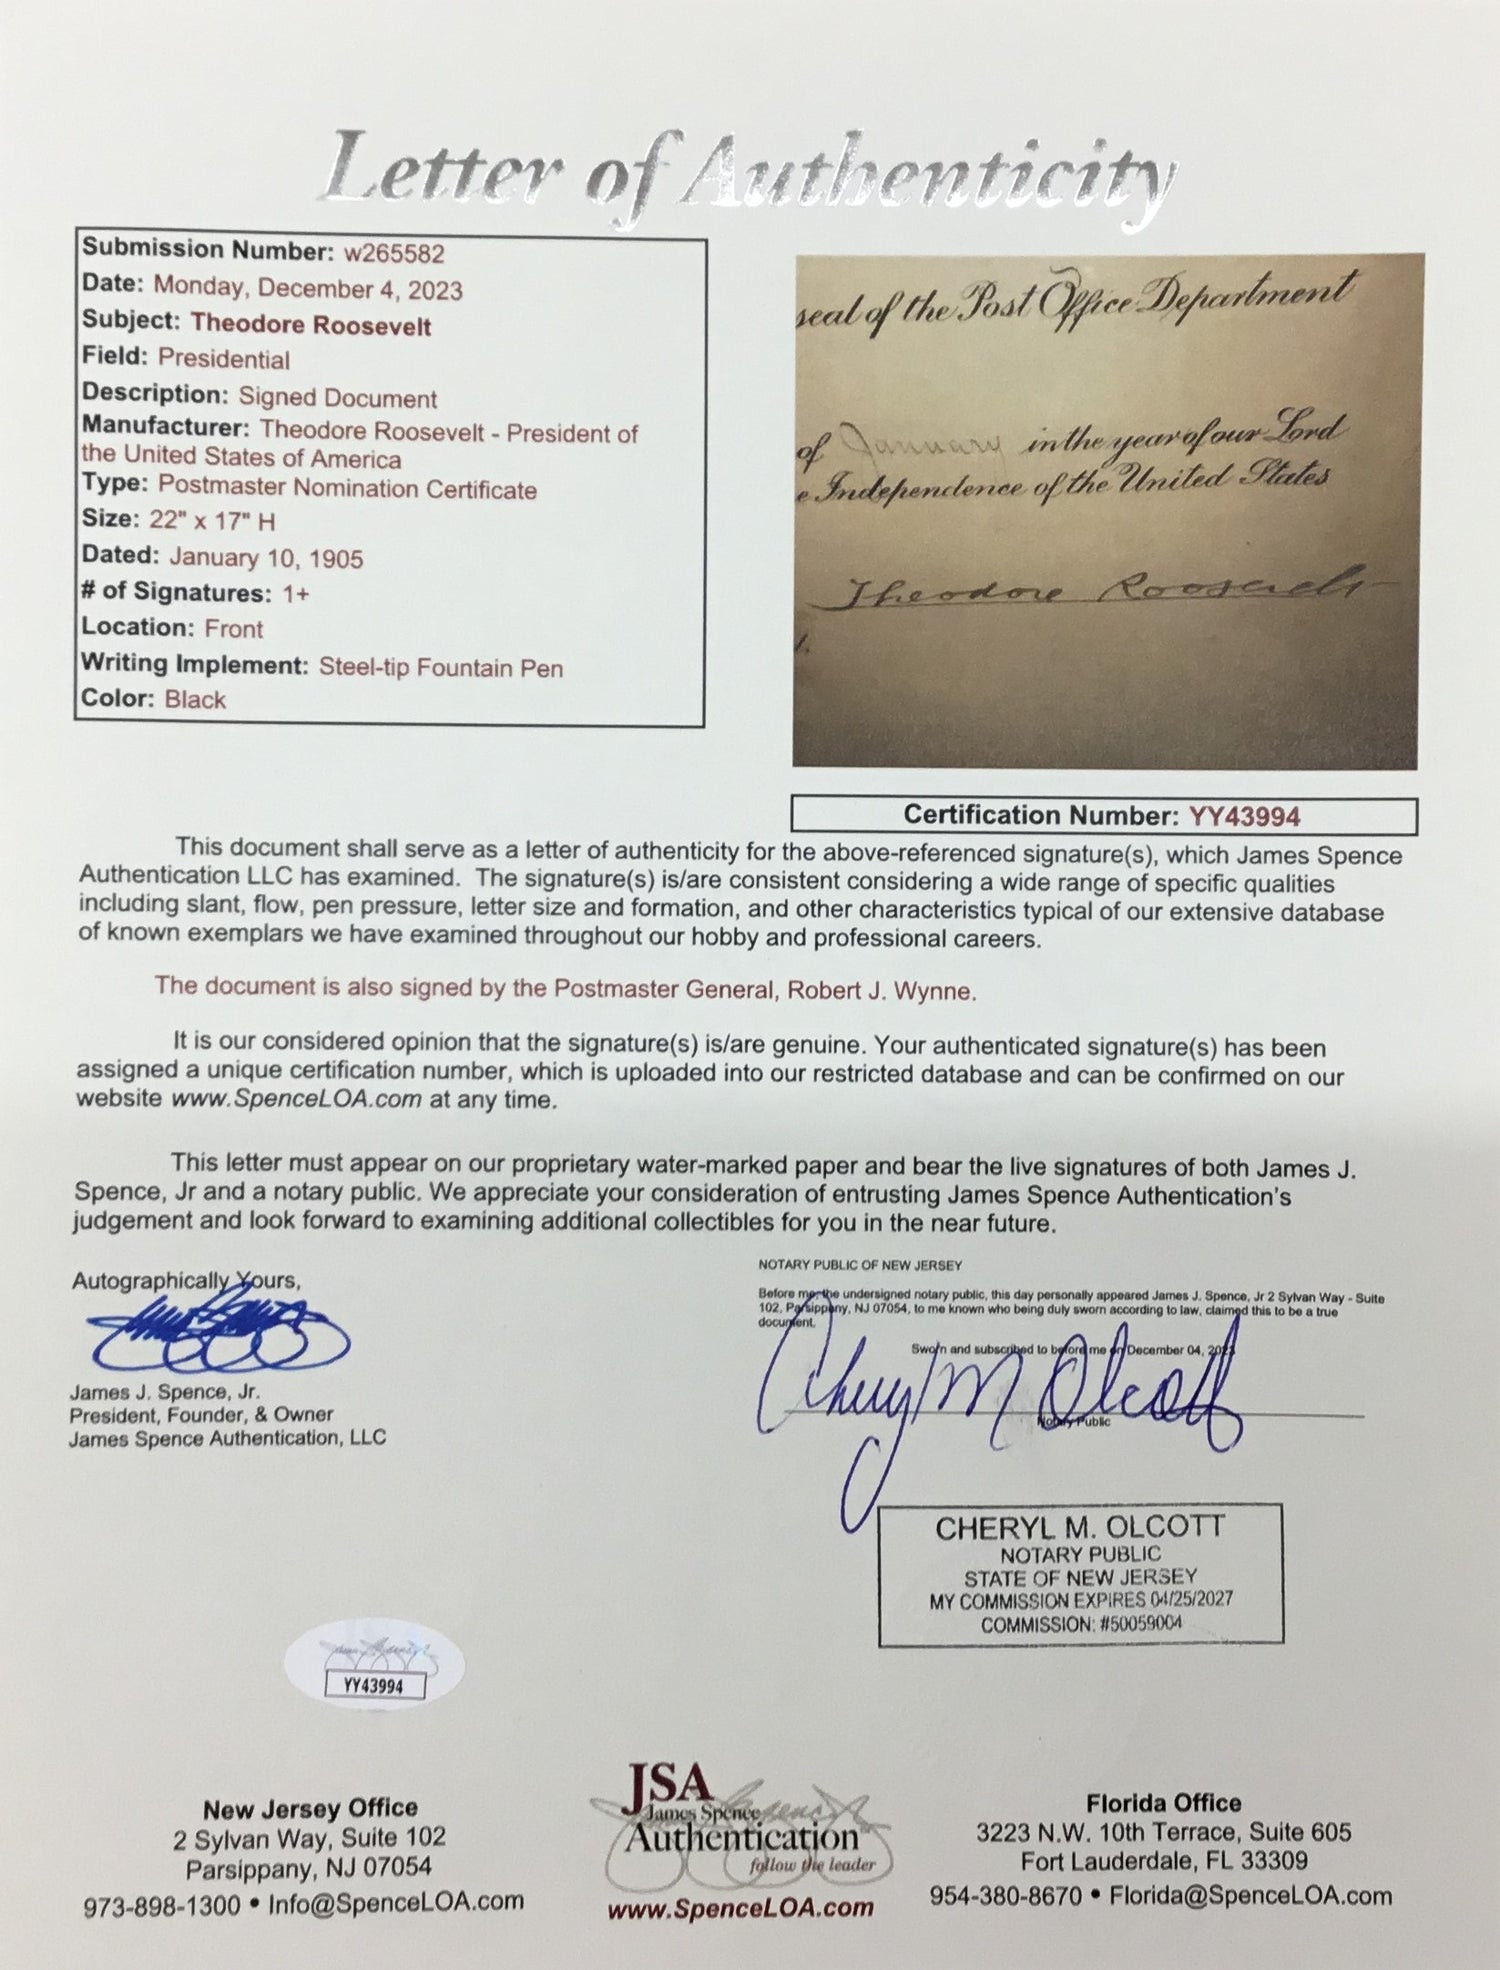 Letter of Authenticity
Submission Number: w265582
Date: Monday, December 4, 2023
Subject: Theodore Roosevelt
Field: Presidential
Description: Signed Document
Manufacturer: Theodore Roosevelt - President of
the United States of America
Type: Postmaster Nomination Certificate
Size: 22" x 17" H
Dated: January 10, 1905
# of Signatures: 1+
Location: Front
Writing Implement: Steel-tip Fountain Pen
Color: Black
seal of the Post Office Department
of January in the year of our Lord
e Independence of the United States
Theodore Roosevelt
Certification Number: YY43994
This document shall serve as a letter of authenticity for the above-referenced signature(s), which James Spence
Authentication LLC has examined. The signature(s) is/are consistent considering a wide range of specific qualities
including slant, flow, pen pressure, letter size and formation, and other characteristics typical of our extensive database
of known exemplars we have examined throughout our hobby and professional careers.
The document is also signed by the Postmaster General, Robert J. Wynne.
It is our considered opinion that the signature(s) is/are genuine. Your authenticated signature(s) has been
assigned a unique certification number, which is uploaded into our restricted database and can be confirmed on our
website www.SpenceLOA.com at any time.
This letter must appear on our proprietary water-marked paper and bear the live signatures of both James J.
Spence, Jr and a notary public. We appreciate your consideration of entrusting James Spence Authentication's
judgement and look forward to examining additional collectibles for you in the near future.
Autographically Yours,
James J. Spence, Jr.
President, Founder, & Owner
James Spence Authentication, LLC
NOTARY PUBLIC OF NEW JERSEY
Before me, the undersigned notary public, this day personally appeared James J. Spence, Jr 2 Sylvan Way - Suite
102, Parsippany, NJ 07054, to me known who being duly sworn according to law, claimed this to be a true
document.
Sworn and subscribed to before me on December 04, 2023
Cheryl M Olcott
Notary Public
CHERYL M. OLCOTT
NOTARY PUBLIC
STATE OF NEW JERSEY
MY COMMISSION EXPIRES 04/25/2027
COMMISSION: #50059004
YY43994
New Jersey Office
2 Sylvan Way, Suite 102
Parsippany, NJ 07054
973-898-1300 • Info@SpenceLOA.com
JSA
James Spence
Authentication
follow the leader
www.SpenceLOA.com
Florida Office
3223 N.W. 10th Terrace, Suite 605
Fort Lauderdale, FL 33309
954-380-8670 • Florida@SpenceLOA.com